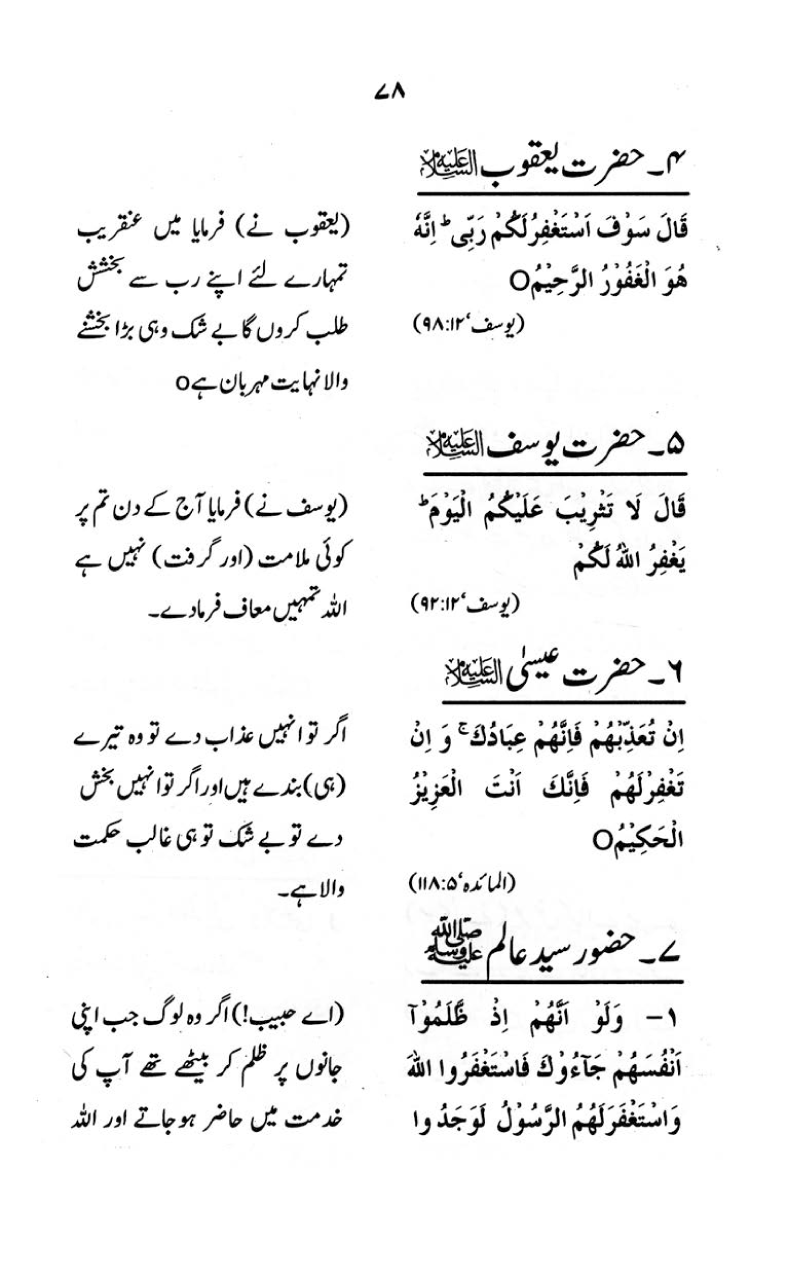 ۷۸
۴۔ حضرت یعقوب علیہ السلام
قَالَ سَوْفَ اَسْتَغْفِرُ لَكُمْ رَبِّیْ ؕ اِنَّهٗ
هُوَ الْغَفُوْرُ الرَّحِیْمُO
(یوسف، ۱۲:۹۸)
(یعقوب نے) فرمایا میں عنقریب
تمہارے لئے اپنے رب سے بخشش
طلب کروں گا بے شک وہی بڑا بخشنے
والا نہایت مہربان ہےo
۵۔ حضرت یوسف علیہ السلام
قَالَ لَا تَثْرِیْبَ عَلَیْكُمُ الْیَوْمَ ؕ
یَغْفِرُ اللهُ لَكُمْ
(یوسف، ۱۲:۹۲)
(یوسف نے) فرمایا آج کے دن تم پر
کوئی ملامت (اور گرفت) نہیں ہے
اللہ تمہیں معاف فرما دے۔
۶۔ حضرت عیسیٰ علیہ السلام
اِنْ تُعَذِّبْهُمْ فَاِنَّهُمْ عِبَادُكَ ۚ وَ اِنْ
تَغْفِرْلَهُمْ فَاِنَّكَ اَنْتَ الْعَزِیْزُ
الْحَكِیْمُO
(المائدہ، ۵:۱۱۸)
اگر تو انہیں عذاب دے تو وہ تیرے
(ہی) بندے ہیں اور اگر تو انہیں بخش
دے تو بے شک تو ہی غالب حکمت
والا ہے۔
۷۔ حضور سید عالم ﷺ
۱– وَلَوْ اَنَّهُمْ اِذْ ظَّلَمُوْۤا
اَنْفُسَهُمْ جَآءُوْكَ فَاسْتَغْفَرُوا اللهَ
وَاسْتَغْفَرَ لَهُمُ الرَّسُوْلُ لَوَجَدُوا
(اے حبیب!) اگر وہ لوگ جب اپنی
جانوں پر ظلم کر بیٹھے تھے آپ کی
خدمت میں حاضر ہو جاتے اور اللہ